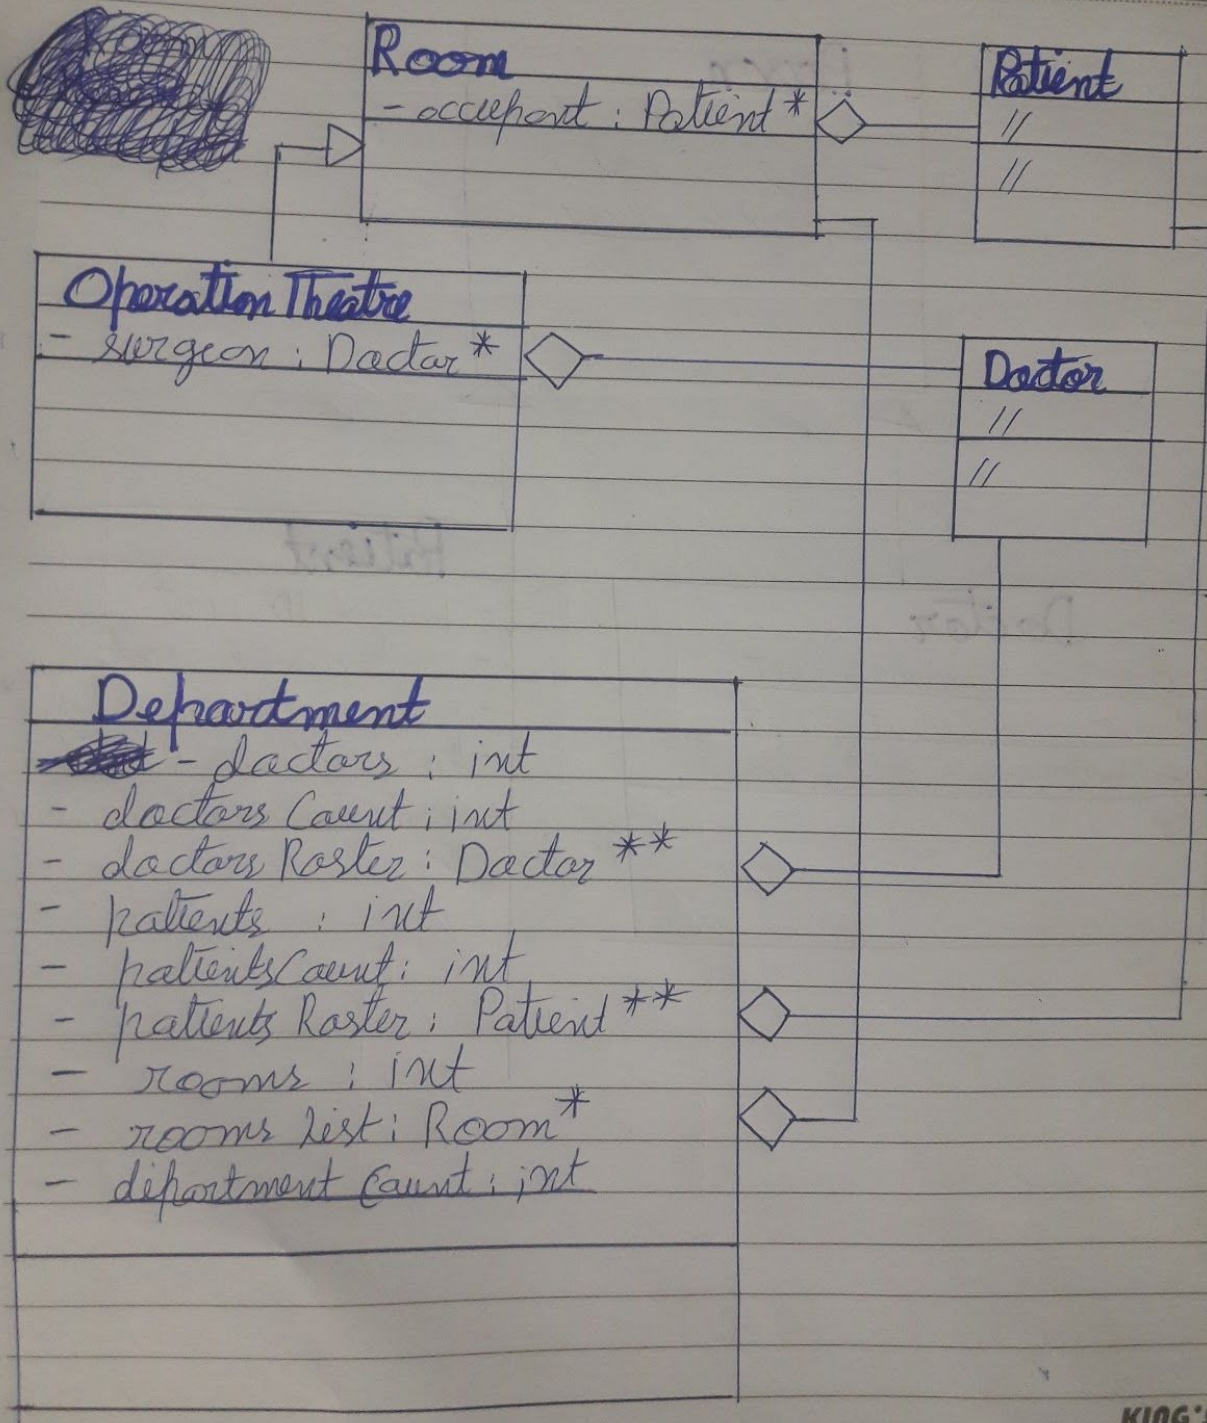 Room
- occupant : Patient *
Patient
//
//
Operation Theatre
- surgeon : Doctor *
Doctor
//
//
Department
- doctors : int
- doctors Count : int
- doctors Roster : Doctor **
- patients : int
- patients Count : int
- patients Roster : Patient **
- rooms : int
- rooms List : Room *
- department Count : int